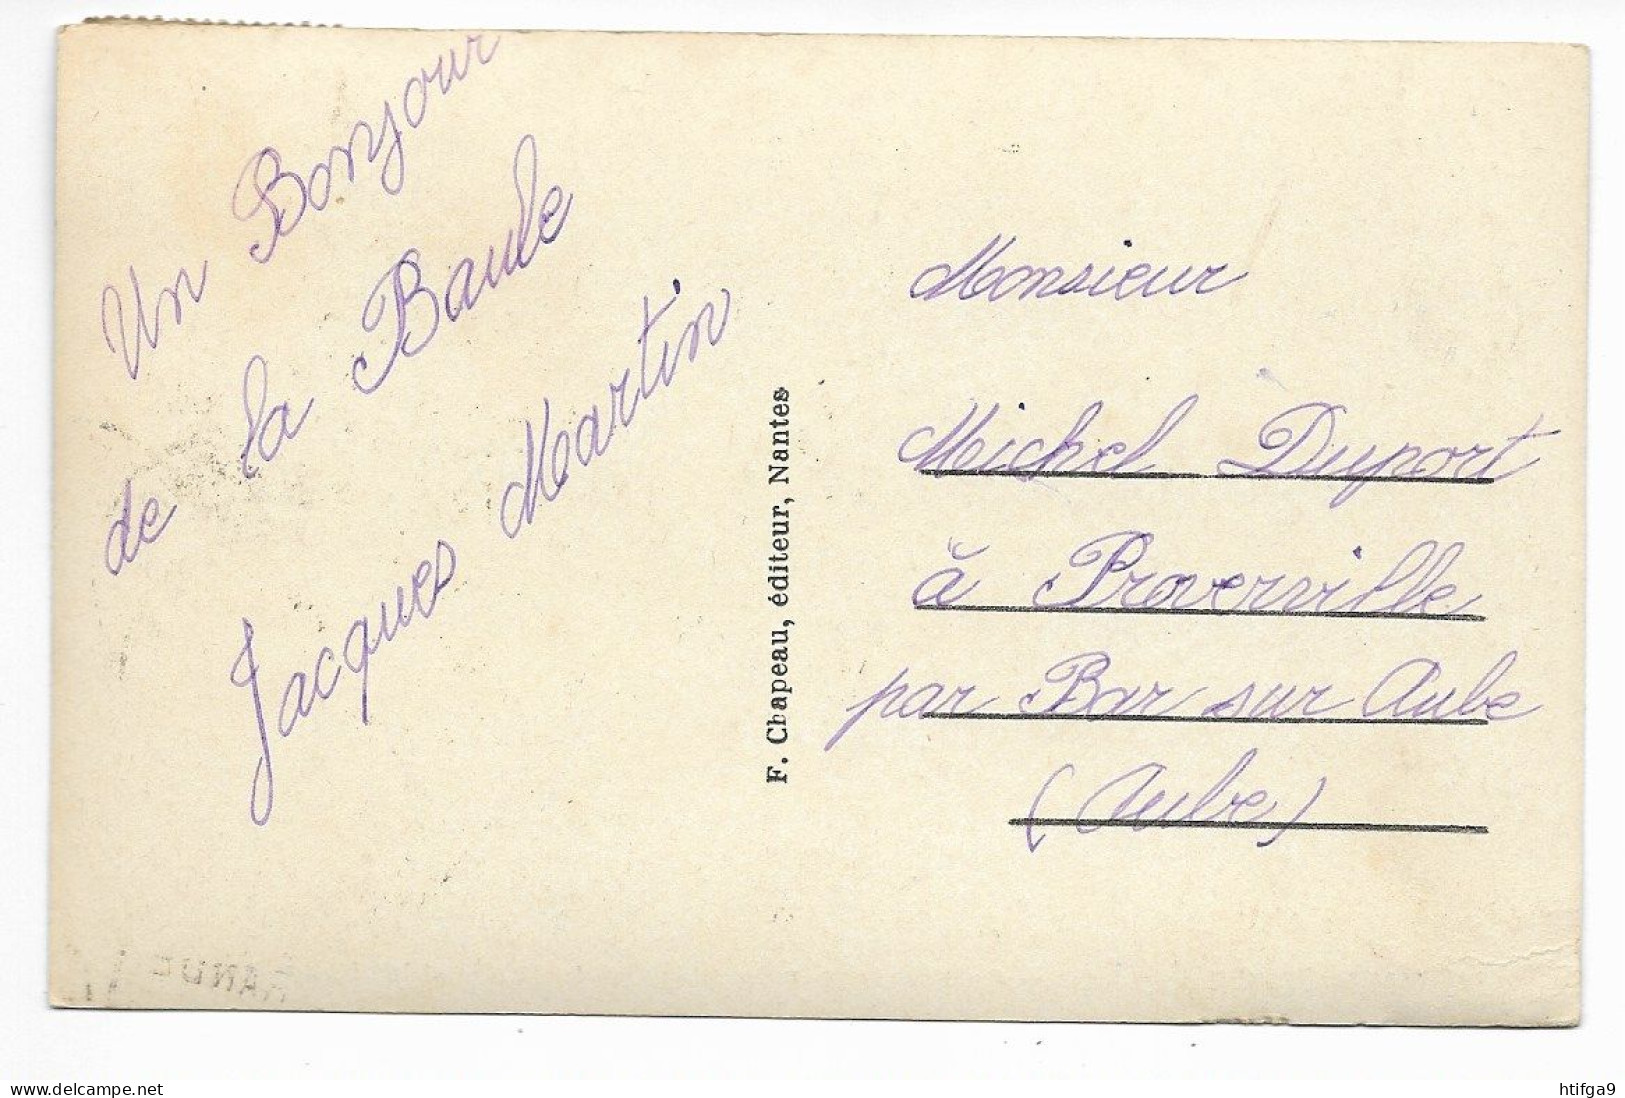 Un Bonjour
de la Baule
Jacques Martin
F. Chapeau, éditeur, Nantes
Monsieur
Michel Duport
à Proverville
par Bar sur Aube
(Aube)
www.delcampe.net
htifga9